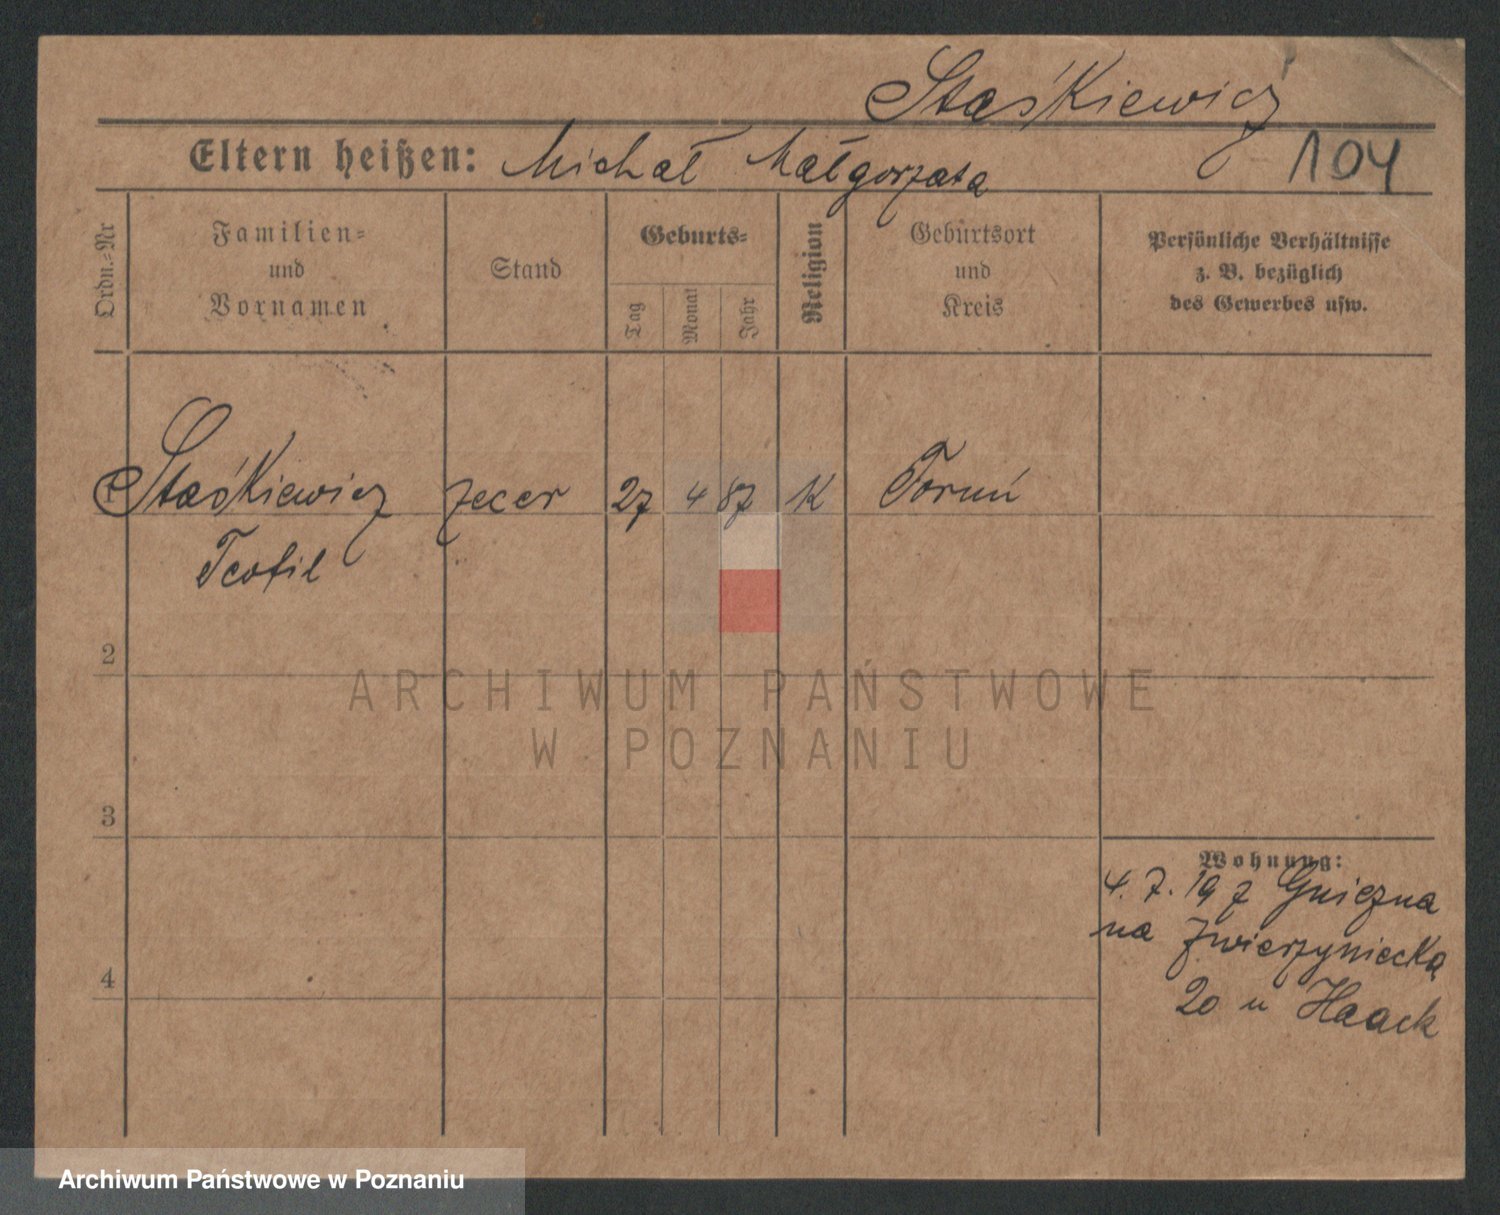 Staśkiewicz
Eltern heißen: Michał Małgorzata
104
Ordn.-Nr
Familien-
und
Vornamen
Stand
Geburts-
Tag
Monat
Jahr
Religion
Geburtsort
und
Kreis
Persönliche Verhältnisse
z. B. bezüglich
des Gewerbes usw.
1 Staśkiewicz zecer 27 4 87 K Toruń
Teofil
2
3
4
Wohnung:
4. 7. 19 z Gniezna
na Zwierzyniecką
20 u Haack
ARCHIWUM PAŃSTWOWE
W POZNANIU
Archiwum Państwowe w Poznaniu